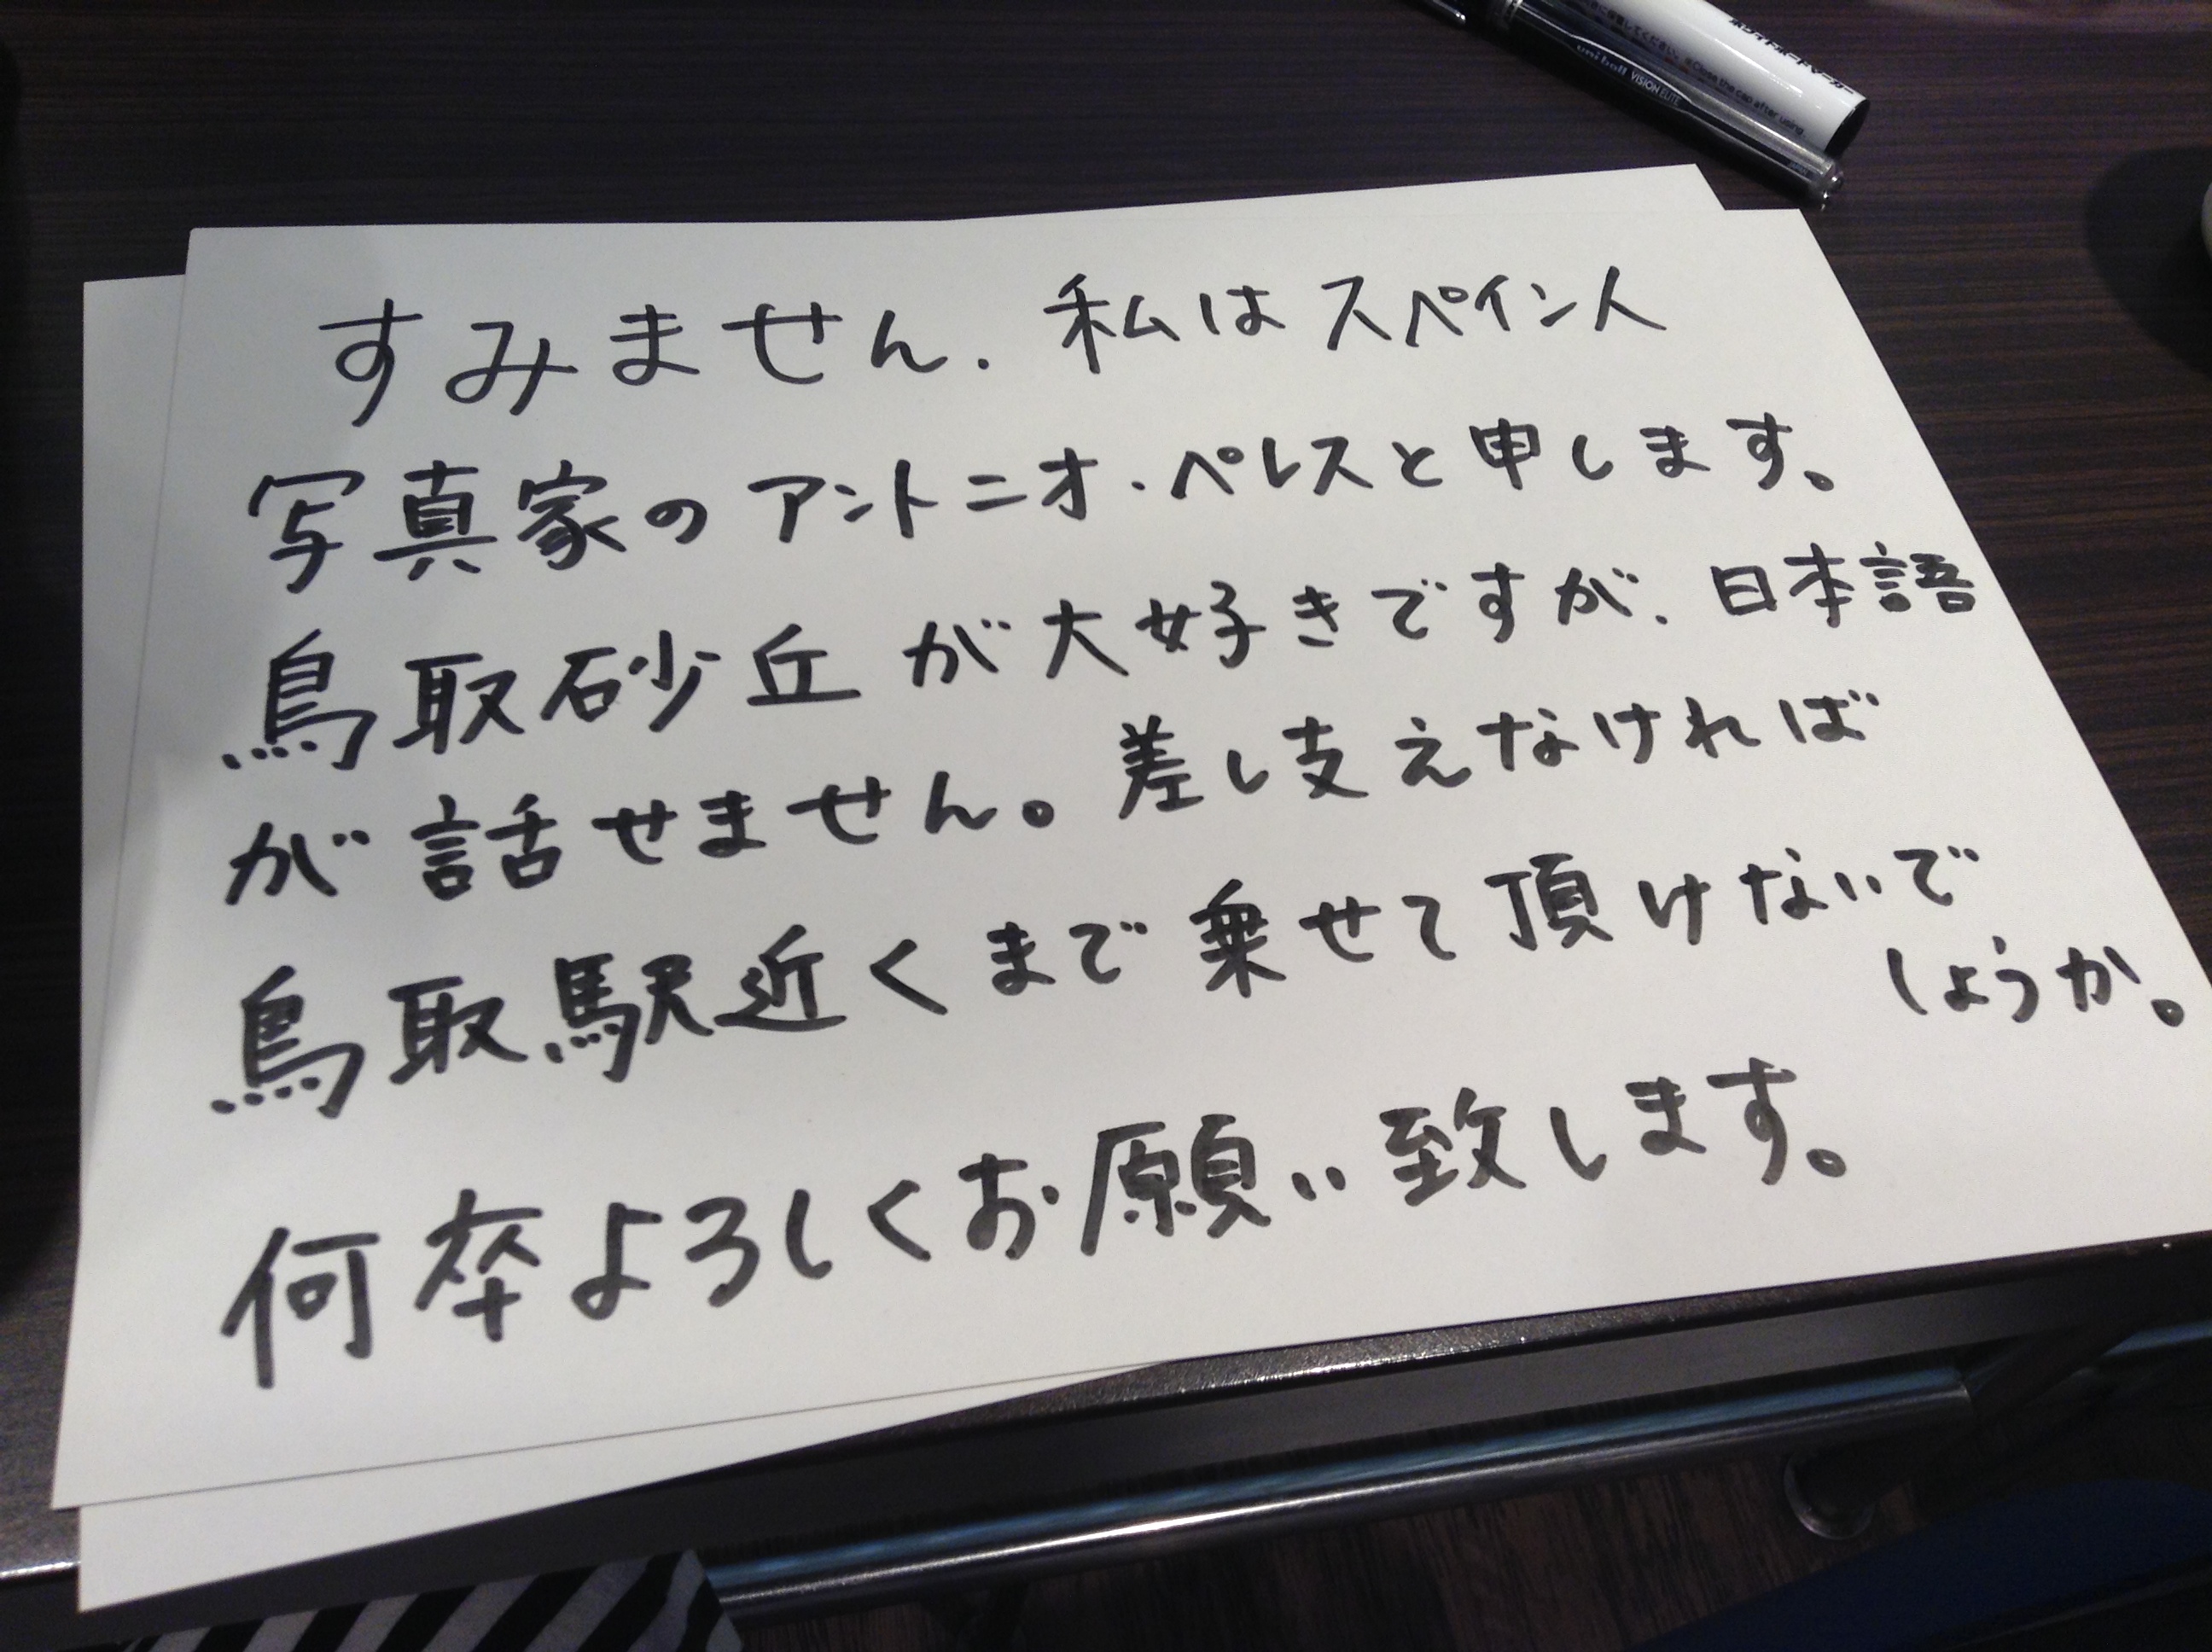 ホワイトボードマーカー
してください。※Close the cap after using.
uni-ball VISION ELITE
すみません. 私はスペイン人
写真家のアントニオ・ペレスと申します。
鳥取砂丘が大好きですが、日本語
が話せません。差し支えなければ
鳥取駅近くまで乗せて頂けないで
しょうか。
何卒よろしくお願い致します。